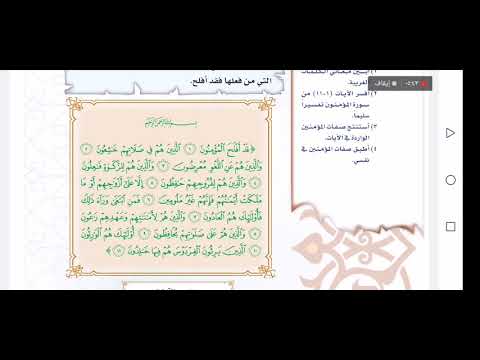 التي من فعلها فقد أفلح.
بسم الله الرحمن الرحيم
﴿ قَدْ أَفْلَحَ ٱلْمُؤْمِنُونَ ١ ٱلَّذِينَ هُمْ فِي صَلَاتِهِمْ خَٰشِعُونَ ٢
وَٱلَّذِينَ هُمْ عَنِ ٱللَّغْوِ مُعْرِضُونَ ٣ وَٱلَّذِينَ هُمْ لِلزَّكَوٰةِ فَٰعِلُونَ
٤ وَٱلَّذِينَ هُمْ لِفُرُوجِهِمْ حَٰفِظُونَ ٥ إِلَّا عَلَىٰٓ أَزْوَٰجِهِمْ أَوْ مَا
مَلَكَتْ أَيْمَٰنُهُمْ فَإِنَّهُمْ غَيْرُ مَلُومِينَ ٦ فَمَنِ ٱبْتَغَىٰ وَرَآءَ ذَٰلِكَ
فَأُو۟لَٰٓئِكَ هُمُ ٱلْعَادُونَ ٧ وَٱلَّذِينَ هُمْ لِأَمَٰنَٰتِهِمْ وَعَهْدِهِمْ رَٰعُونَ
٨ وَٱلَّذِينَ هُمْ عَلَىٰ صَلَوَٰتِهِمْ يُحَافِظُونَ ٩ أُو۟لَٰٓئِكَ هُمُ ٱلْوَٰرِثُونَ
١٠ ٱلَّذِينَ يَرِثُونَ ٱلْفِرْدَوْسَ هُمْ فِيهَا خَٰلِدُونَ ١١ ﴾
معاني الكلمات
الغريبة.
٢) أفسر الآيات (١-١١) من
سورة المؤمنون تفسيرا
سليما.
٣) أستنتج صفات المؤمنين
الواردة في الآيات.
٤) أطبق صفات المؤمنين في
نفسي.
إيقاف